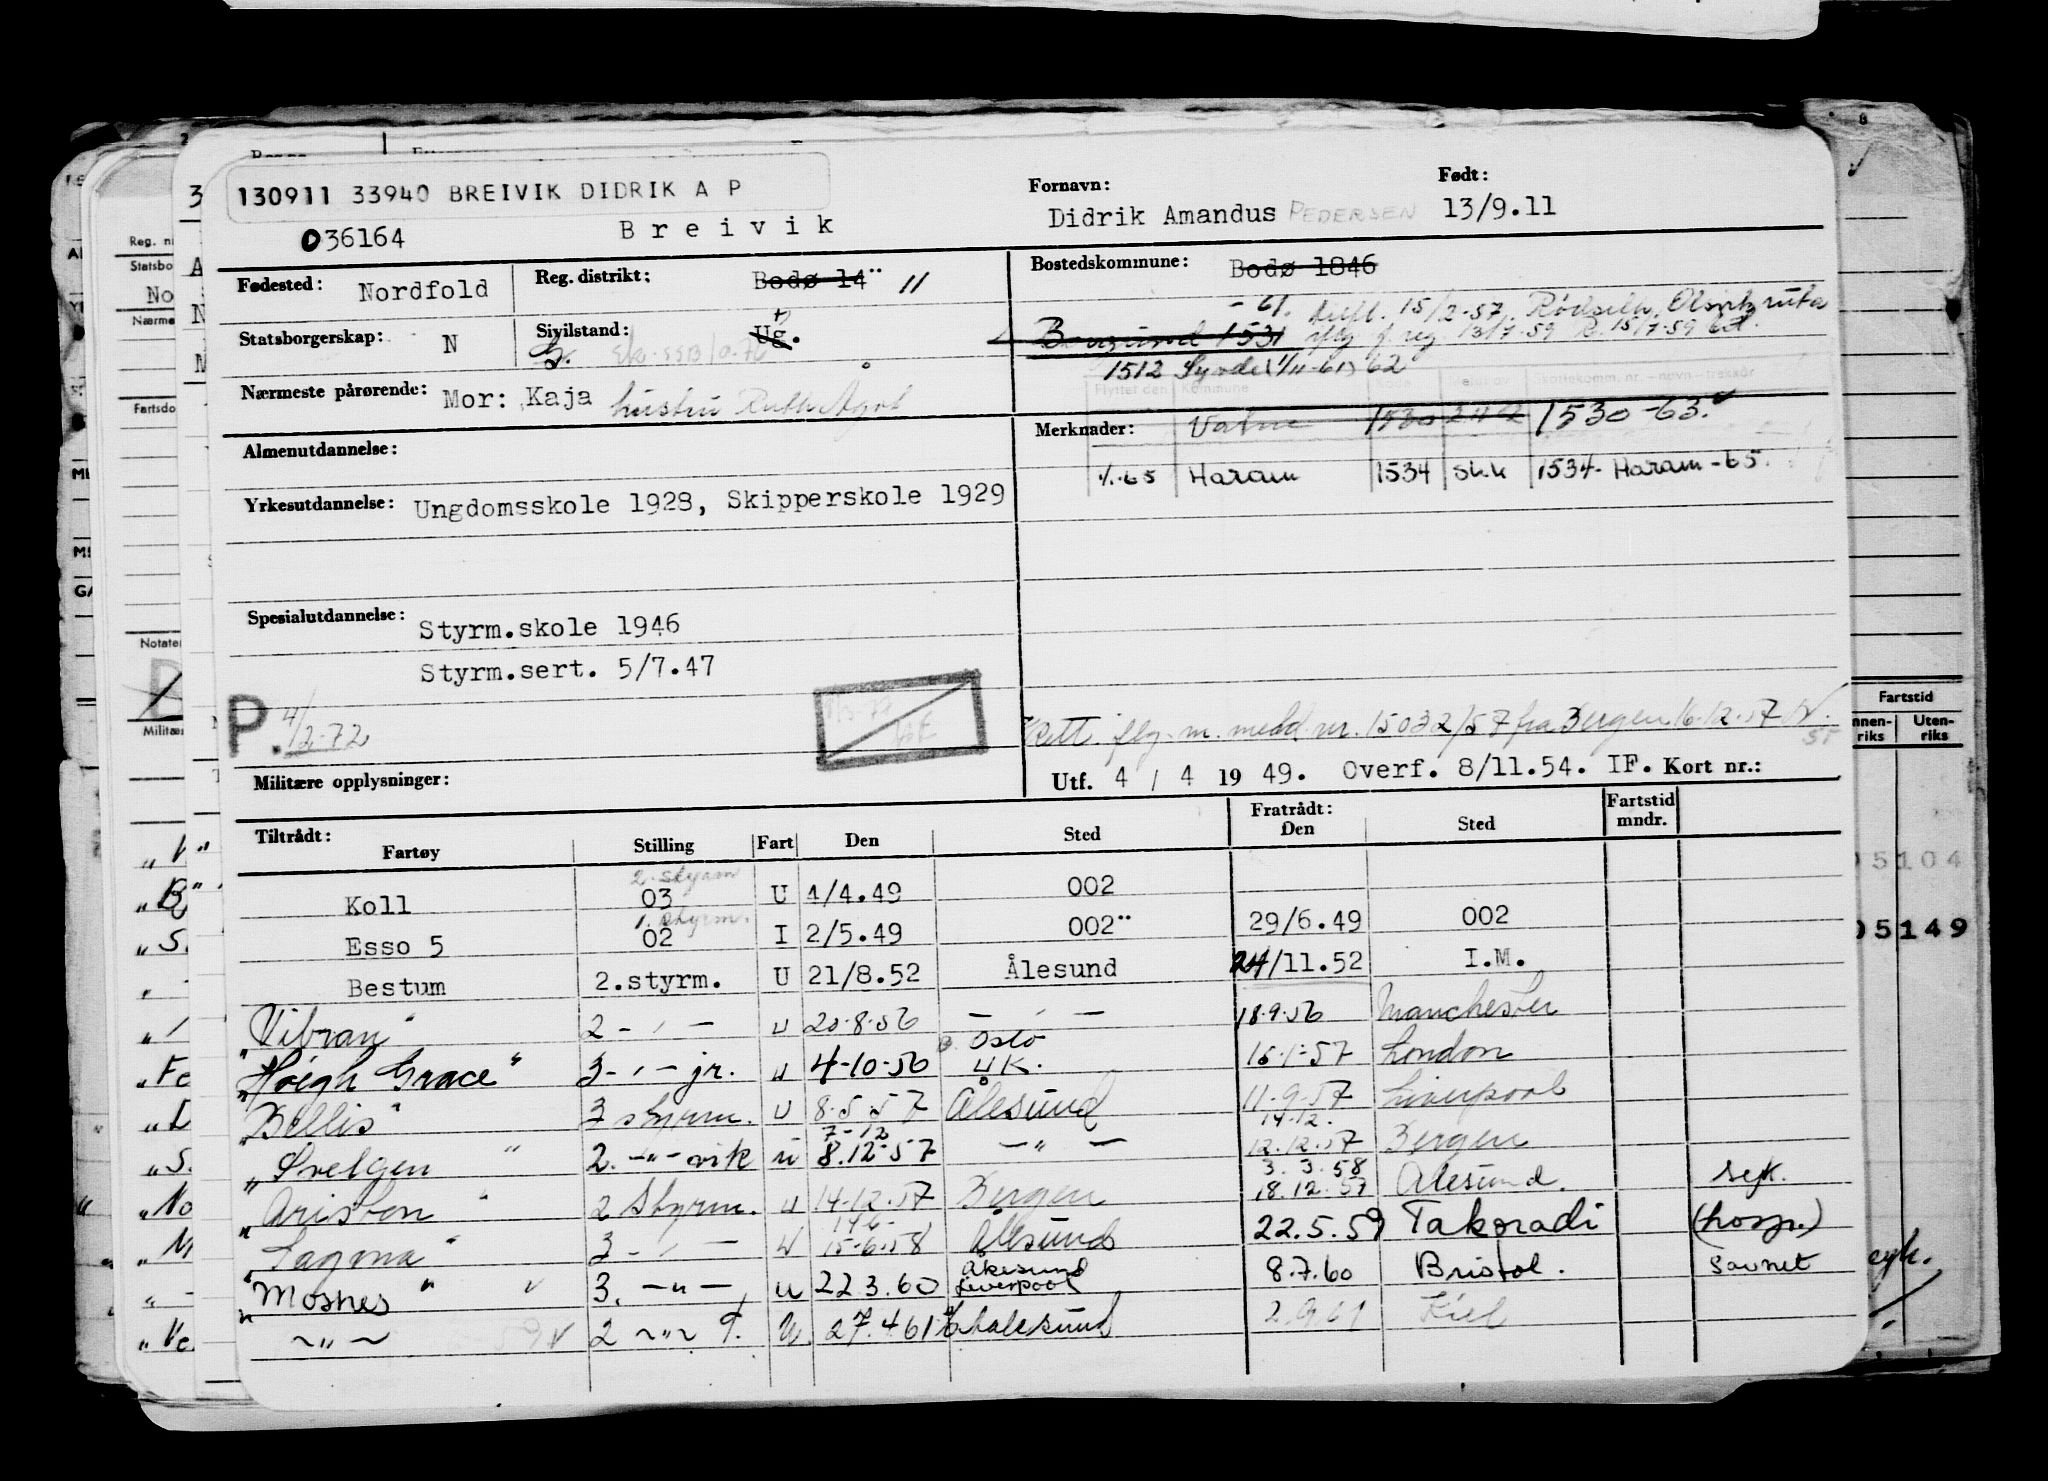 130911 33940 BREIVIK DIDRIK A P
036164
Breivik
Fornavn:
Didrik Amandus PEDERSEN
Født:
13/9.11
Fødested: Nordfold
Reg. distrikt: Bodø 14 11
Bostedskommune: Bodø 1846
- 61.
Statsborgerskap: N
Sivilstand: Ug.
G.
1531
1512 (1/11-61) 62
Nærmeste pårørende: Mor: Kaja hustru
Flyttet den Kommune
Merknader: Vatne 1530 1530-63.
1/1-65 Haram 1534 Sk.k 1534-Haram-65.
Almenutdannelse:
Yrkesutdannelse: Ungdomsskole 1928, Skipperskole 1929
Spesialutdannelse: Styrm.skole 1946
Styrm.sert. 5/7.47
P. 4/2-72
Rett. m. meld nr. 15032/57 fra Bergen 16-12-57
Militære opplysninger:
Utf. 4 / 4 19 49. Overf. 8/11.54. IF. Kort nr.:
Tiltrådt:
Fartøy Stilling Fart Den Sted
Fratrådt:
Den Sted
Fartstid
mndr.
2. styrm
Koll 03 U 1/4.49 002
1. styrm.
Esso 5 02 I 2/5.49 002 29/6.49 002
Bestum 2.styrm. U 21/8.52 Ålesund 24/11.52 I.M.
"Vibran" 2 - " - u 20-8-56 - " - 18-9-56 Manchester
Oslo
"Höegh Grace" 3 - " - jr. u 4-10-56 UK. 16-1-57 London
"Bellis" 3 styrm. u 8-5-57 Ålesund 11-9-57 Liverpool
7-12 14-12.
"Svelgen" 2. -"- vik u 8.12-57 - " - 12-12-57 Bergen
3-3-58
"Aristen" 2 Styrm. u 14-12-57 Bergen 18.12.57 Ålesund. syk.
14-6-
"Sagona" 3 - " - u 15-6-58 Ålesund 22.5.59 Takoradi (hosp.)
Ålesund
"Mosnes" 3. -"- u 22 3.60 Liverpool 8.7.60 Bristol. savnet
~"~ 2 ~"~ T. U. 27.4 61 Aalesund 2.9.61 Kiel
Reg. nr
Statsbo
No
Nærme
Fartsdo
Notater
Militær
Fartstid
Innen-
riks
Uten-
riks
05104
05149
syk.